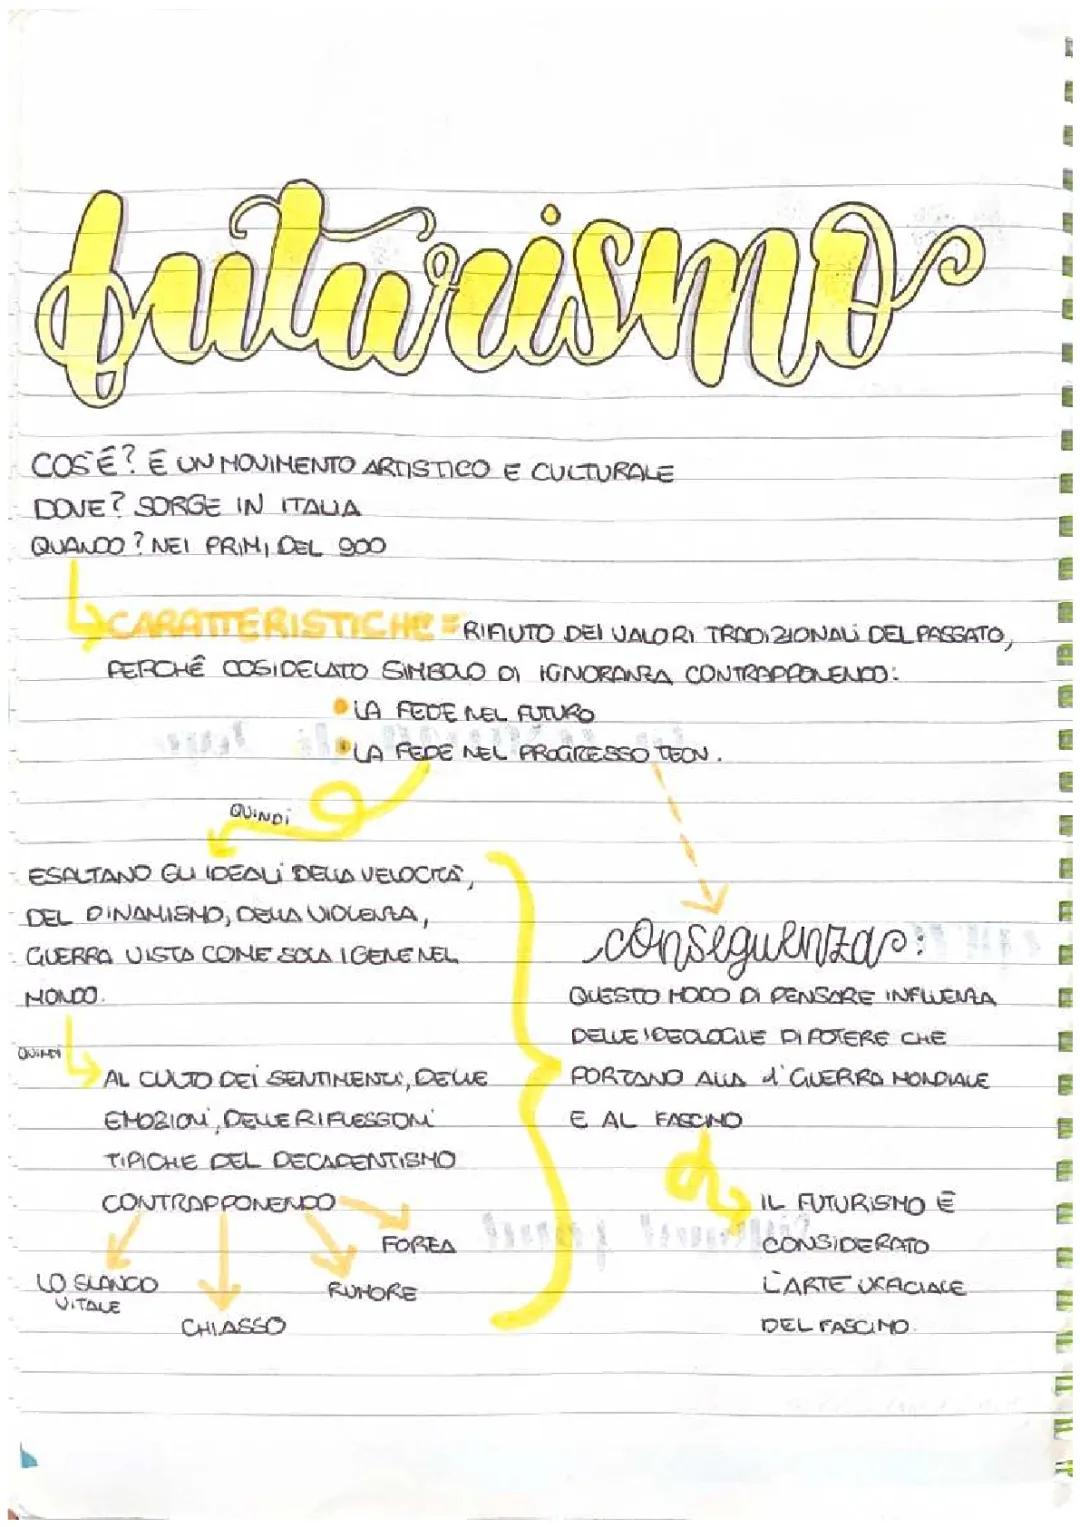 futurismo
COS'È? È UN MOVIMENTO ARTISTICO E CULTURALE
DOVE? SORGE IN ITALIA
QUANDO? NEI PRIMI DEL 900
CARATTERISTICHE = RIFIUTO DEI VALORI TRADIZIONALI DEL PASSATO,
PERCHÉ COSIDELATO SIMBOLO DI IGNORANZA CONTRAPPONENDO:
• LA FEDE NEL FUTURO
• LA FEDE NEL PROGRESSO TECN.
QUINDI
ESALTANO GLI IDEALI DELLA VELOCITÀ,
DEL DINAMISMO, DELLA VIOLENZA,
GUERRA VISTA COME SOLA IGENE NEL
MONDO.
QUINDI
AL CULTO DEI SENTIMENTI, DELLE
EMOZIONI, DELLE RIFLESSIONI
TIPICHE DEL DECADENTISMO
CONTRAPPONENDO
FORZA
LO SLANCIO
VITALE
RUMORE
CHIASSO
conseguenza:
QUESTO MODO DI PENSARE INFLUENZA
DELLE IDEOLOGIE DI POTERE CHE
PORTANO ALLA 1ª GUERRA MONDIALE
E AL FASCINO
IL FUTURISMO È
CONSIDERATO
L'ARTE UFFICIALE
DEL FASCINO.